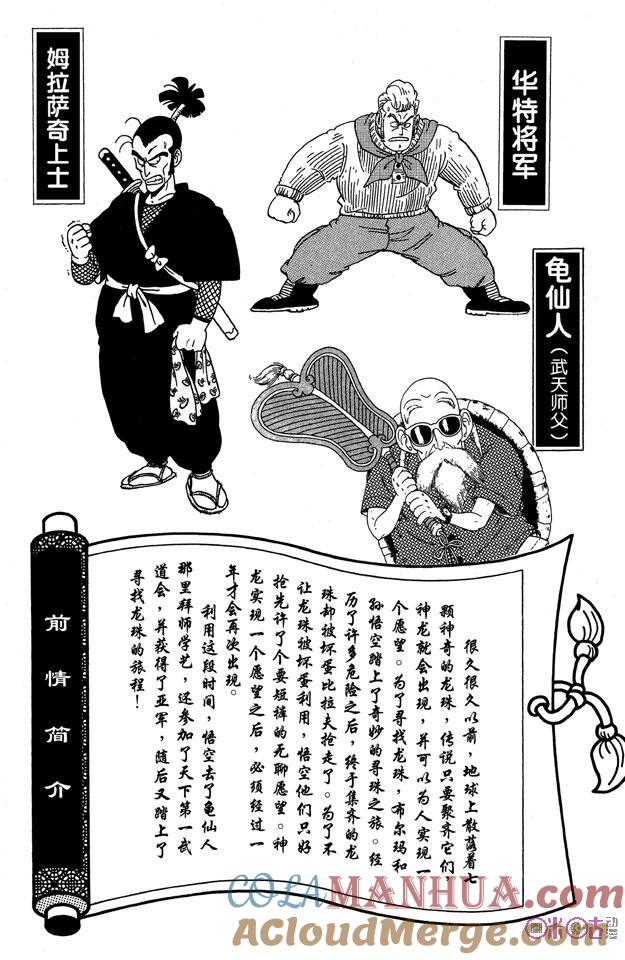 华特将军
姆拉萨奇上士
龟仙人（武天师父）
前情简介
很久很久以前，地球上散落着七
颗神奇的龙珠，传说只要聚齐它们
神龙就会出现，并可以为人实现一
个愿望。为了寻找龙珠，布尔玛和
孙悟空踏上了奇妙的寻珠之旅。经
历了许多危险之后，终于集齐的龙
珠却被坏蛋比拉夫抢走了。为了不
让龙珠被坏蛋利用，悟空他们只好
抢先许了个要短裤的无聊愿望。神
龙实现一个愿望之后，必须经过一
年才会再次出现。
利用这段时间，悟空去了龟仙人
那里拜师学艺，还参加了天下第一武
道会，并获得了亚军，随后又踏上了
寻找龙珠的旅程！
COLAMANHUA.COM
ACloudMerge.com
咪咕动漫